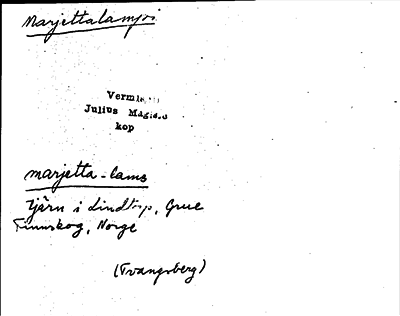 Marjettalampi
Vermland
Julius Mägiste
kop
marjetta-lams
tjärn i Lindtorp, Grue
Finnskog, Norge
(Tvangsberg)